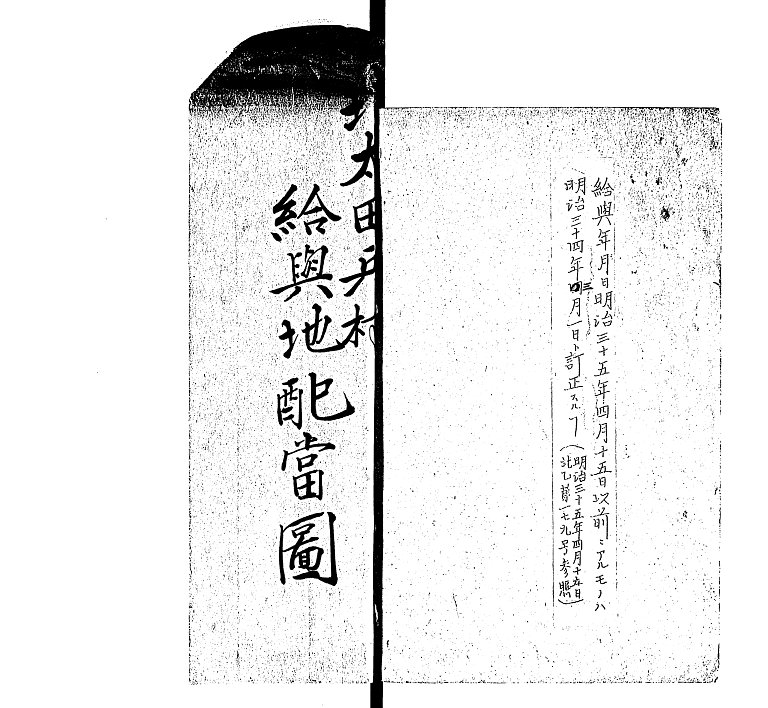 給與年月日明治三十五年四月十五日以前ニアルモノハ
明治三十四年三月一日ト訂正スヘ﹁
(明治三十五年四月十五日
一七九号参照)
太田戸村
給與地配當圖